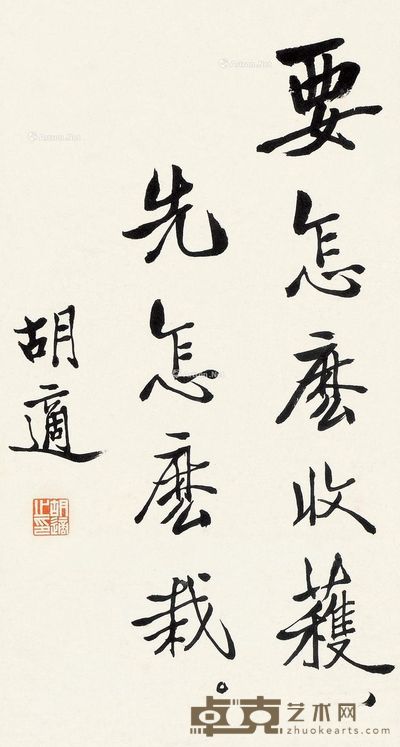 要怎麼收穫、
先怎麼栽。
胡適
胡適之印
卓克艺术网
zhuokearts.com